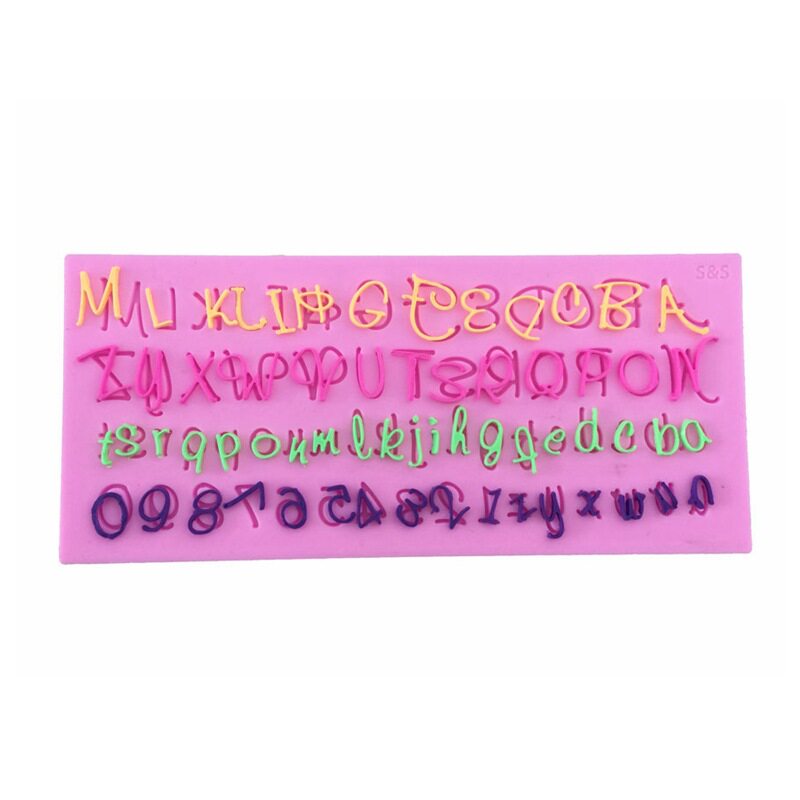 S&S
M L K J I H G F E D C B A
Z Y X W V U T S R Q P O N
t s r q p o n m l k j i h g f e d c b a
0 9 8 7 6 5 4 3 2 1 z y x w v u